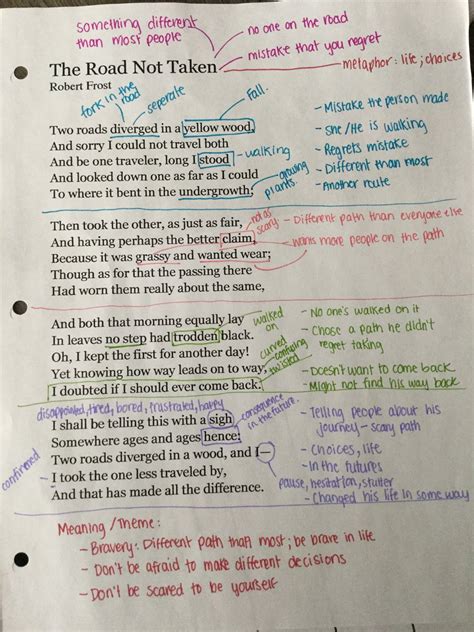 something different
than most people
no one on the road
mistake that you regret
metaphor: life; choices
The Road Not Taken
Robert Frost
fork in the
road
seperate
Fall.
Two roads diverged in a yellow wood,
And sorry I could not travel both
And be one traveler, long I stood
walking
And looked down one as far as I could
To where it bent in the undergrowth;
growing
plants.
- Mistake the person made
- She/He is walking
- Regrets mistake
- Different than most
- Another route
Then took the other, as just as fair,
And having perhaps the better claim,
Because it was grassy and wanted wear;
Though as for that the passing there
Had worn them really about the same,
not as
scary
- Different path than everyone else
- wants more people on the path
And both that morning equally lay
In leaves no step had trodden black.
Oh, I kept the first for another day!
Yet knowing how way leads on to way,
I doubted if I should ever come back.
walked
on
curved
confusing
twisted
- No one's walked on it
- Chose a path he didn't
regret taking
- Doesn't want to come back
- Might not find his way back
disappointed, tired, bored, frustrated, happy
I shall be telling this with a sigh
Somewhere ages and ages hence:
Two roads diverged in a wood, and I—
I took the one less traveled by,
And that has made all the difference.
confirmed
consequence
in the future.
- Telling people about his
journey - scary path
- Choices, life
- In the futures
pause, hesitation, stutter
- Changed his life in some way
Meaning/Theme:
- Bravery: Different path than most; be brave in life
- Don't be afraid to make different decisions
- Don't be scared to be yourself